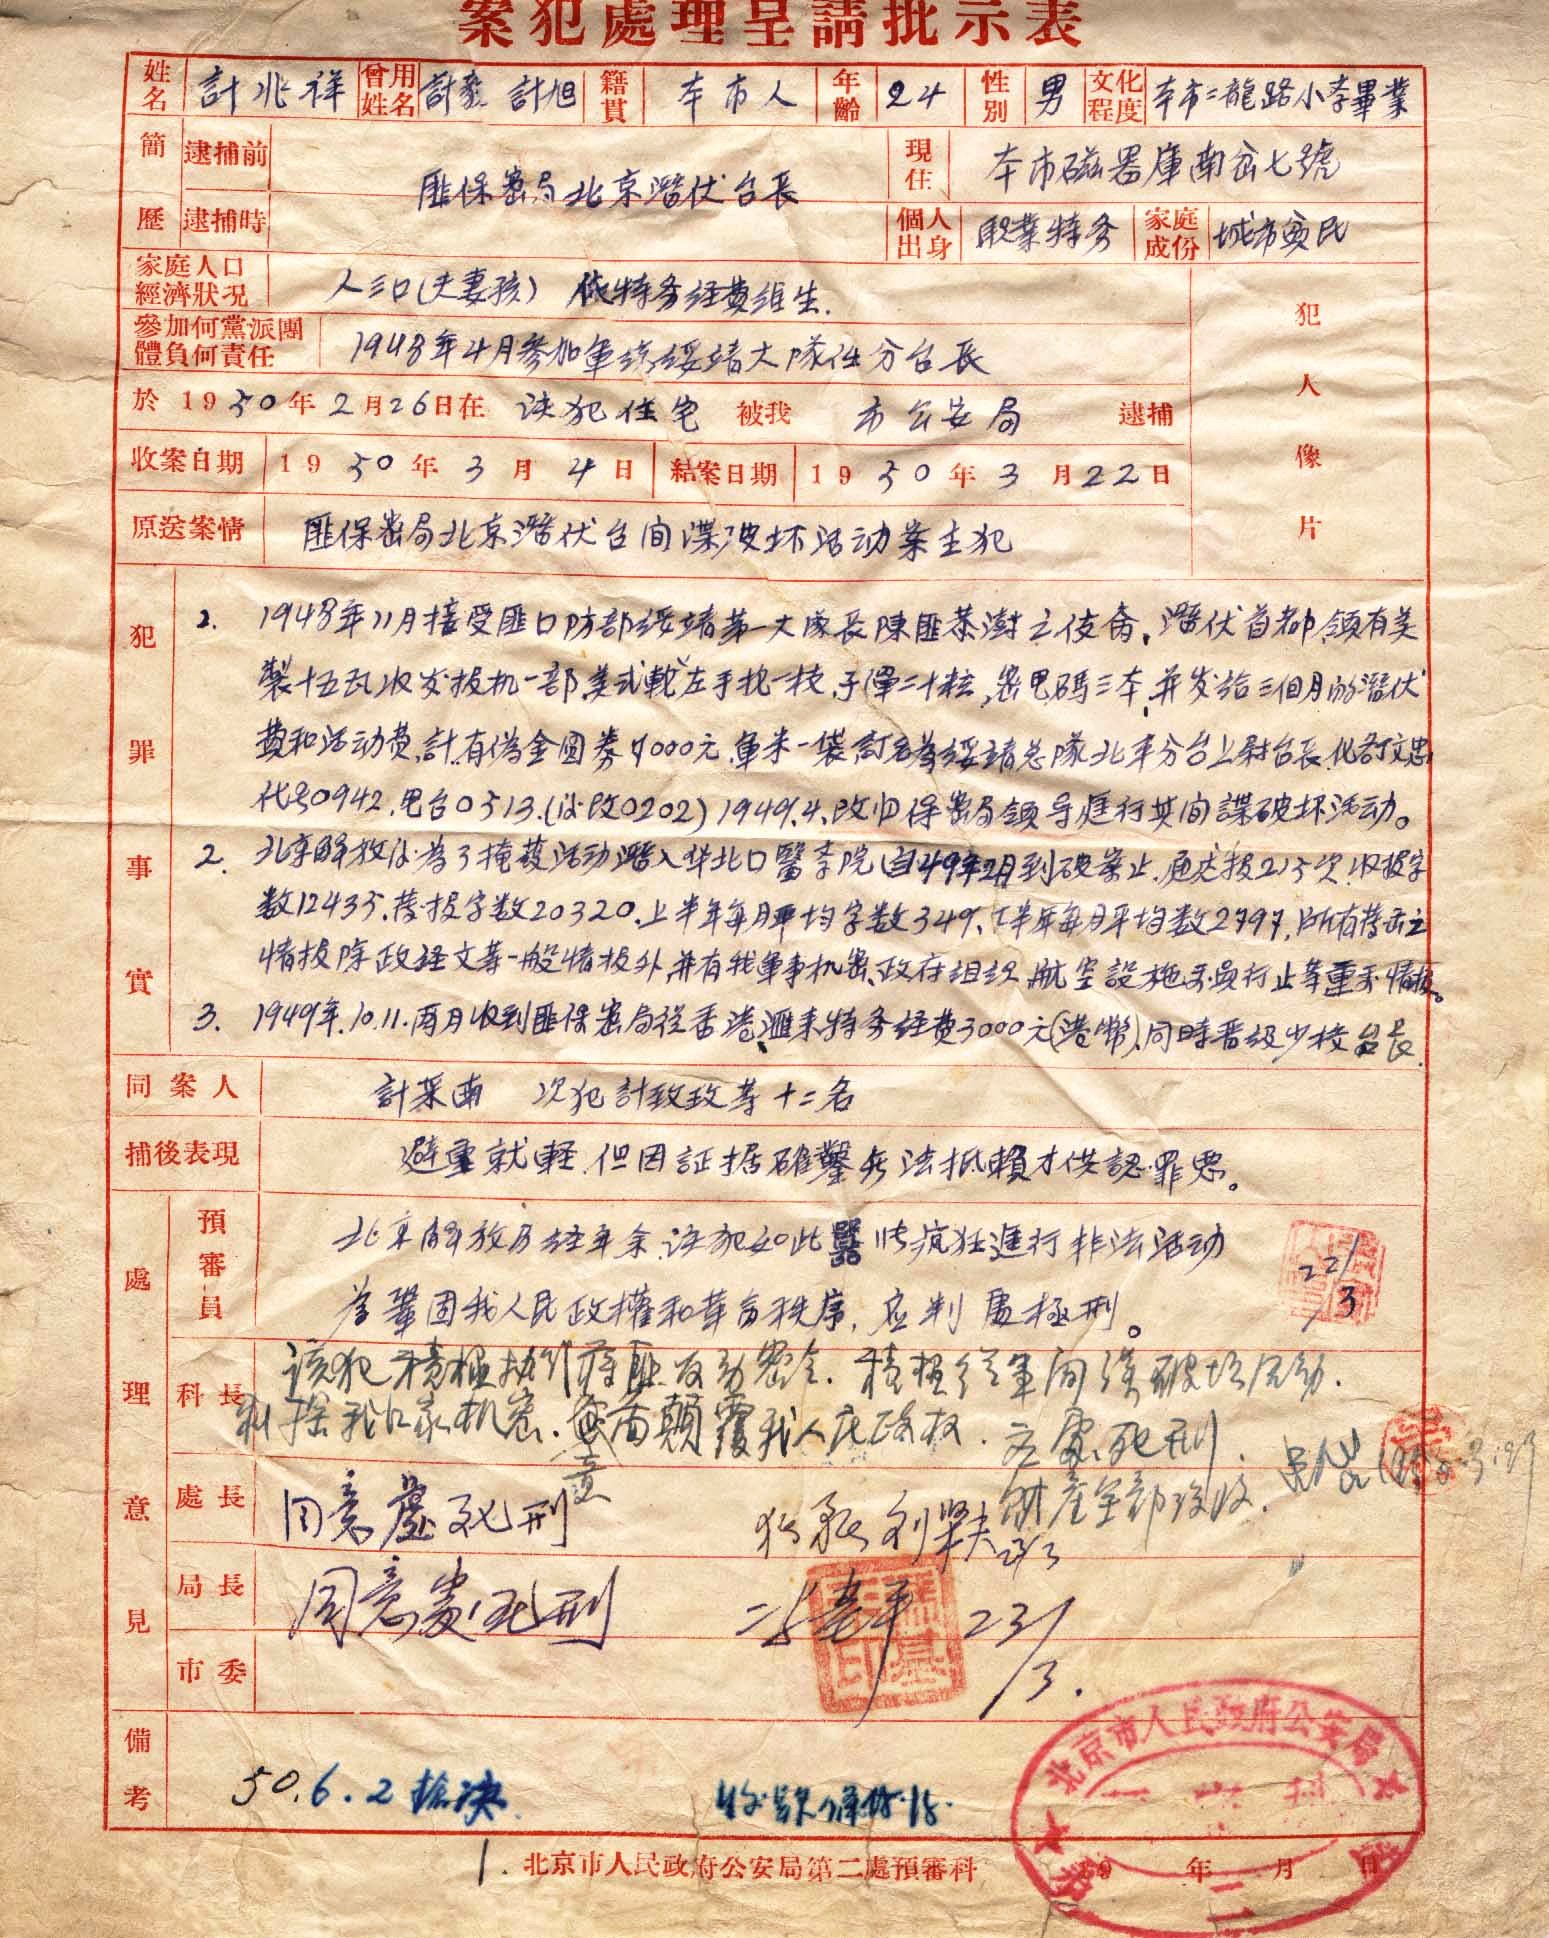 案犯處理呈請批示表
姓名 計兆祥 曾用姓名 計旭 籍貫 本市人 年齡 24 性別 男 文化程度 本市二龍路小李畢業
簡歷 逮捕前 逮捕時 匪保密局北京潛伏台長 現住 本市磁器庫南岔七號
個人出身 职業特务 家庭成份 城市貧民
家庭人口經濟狀況 人三口(夫妻孩) 依特务经费维生.
參加何黨派團體負何責任 1948年4月參加軍統綏靖大隊任分台長
於1950年2月26日在 该犯住宅 被我 市公安局 逮捕
犯人像片
收案日期 1950年3月4日 結案日期 1950年3月22日
原送案情 匪保密局北京潛伏台间谍破坏活动案主犯
犯罪事實
1. 1948年11月接受匪口防部綏靖第一大隊長陳匪恭澍之使命,潛伏首都,领有美
製十五瓦收发报机一部,美式轮左手枪一枝,子彈二十粒,密电碼三本,并发给三個月的潛伏
費和活动费,計有偽金圓券4000元,軍米一袋,訂名為綏靖总隊北平分台上尉台長,化名丁文忠
代号0942,电台0513.(以改0202) 1949.4.改归保密局领导進行其间諜破坏活动。
2. 北京解放以为了掩護活动潛入华北口醫李院(自49年2月到破案止.通过报215次,收报字
数12435,荐报字数20320,上半年每月平均字数349,下半年每月平均数2797,所有荐出之
情报除政经文等一般情报外,并有我軍事机密、政府组织、航空設施、要員行止等重要情报。
3. 1949年.10.11.两月收到匪保密局從香港滙来特务经费3000元(港幣),同時晋級少校台長.
同案人 計采南 次犯計致玫等十二名
捕後表現 避重就輕,但因証据確鑿无法抵賴才供認罪恶。
處理意見
預審員 北京解放乃经年余,该犯如此囂张疯狂進行非法活动
为鞏固我人民政權和革命秩序,应判處極刑。 22/3
科長 该犯积極执行蒋匪反动密令.積極从事间谍破坏活动.
刺探我口家机密.妄图顛覆我人民政权.应處死刑.
財產全部没收.
處長 同意處死刑
局長 同意處死刑 23/3.
市委
備考 50.6.2 槍决
1. 北京市人民政府公安局第二處預審科 19 年 月 日
北京市人民政府公安局